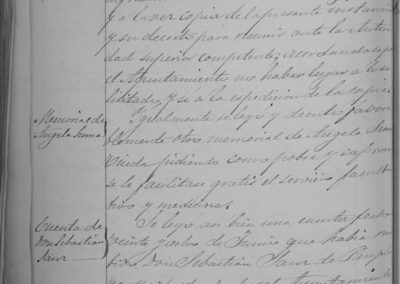 y a la vez copia de la presente instancia
y su decreto para recurrir ante la Autori-
dad superior competente; acordandose por
el Ayuntamiento no haber lugar a lo so-
licitado, y sí a la expedicion de la copia.
Memorial de
Angela
Igualmente se leyó y decretó favora-
blemente otro memorial de Angela
Viuda pidiendo como pobre y
se le facilitase gratis el servicio facul-
tivo y medicinas.
Cuenta de
Don Sebastian
Saur
Se leyo asi bien una cuenta fecha
veinte y cuatro de Junio que habia
Don Sebastian Saur de